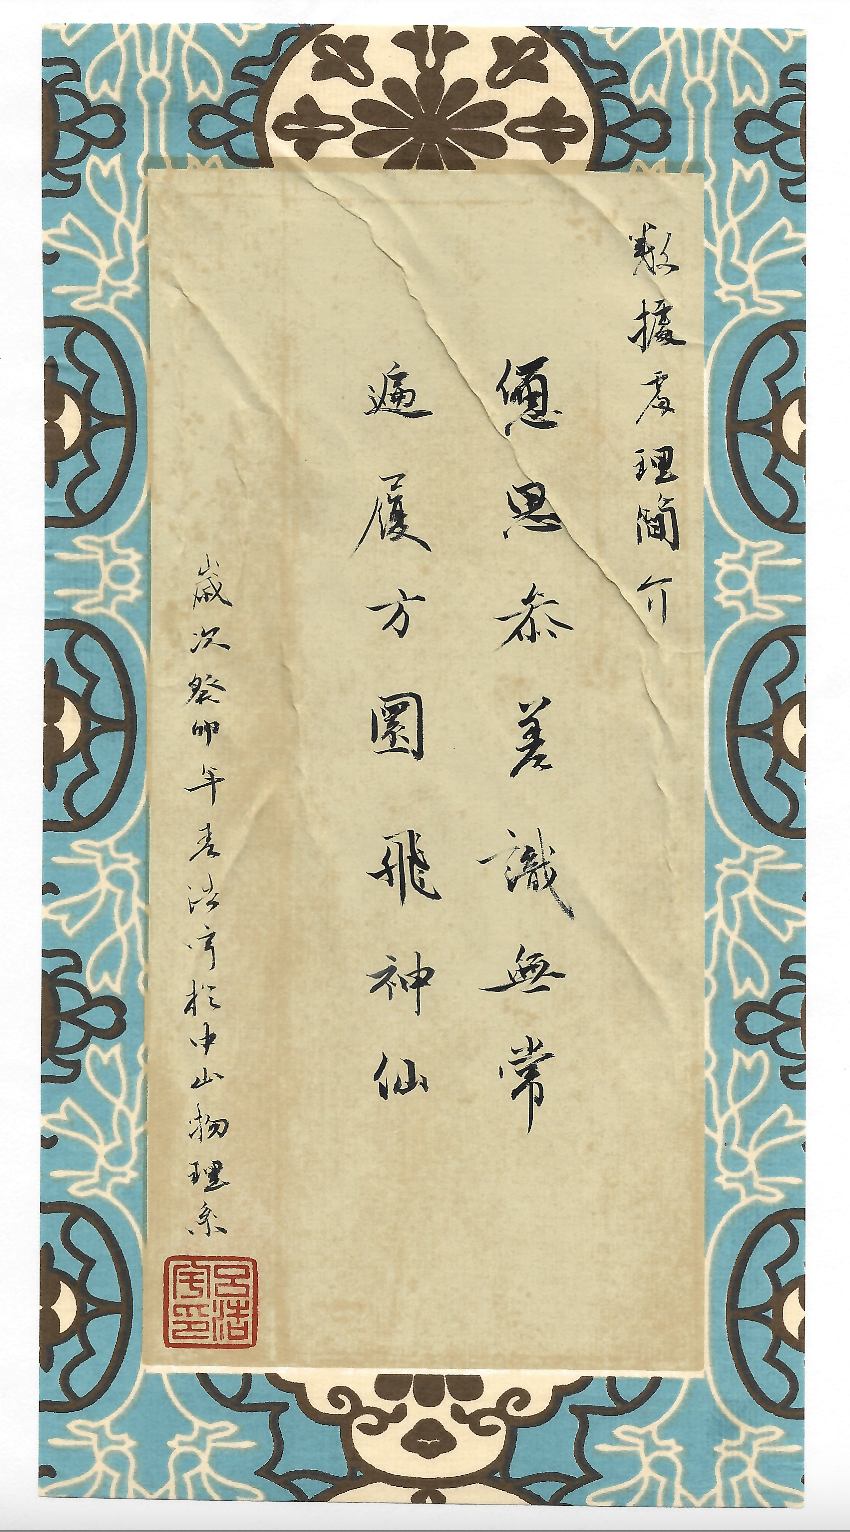 數據處理簡介
思參差識無常
遍履方圜飛神仙
歲次癸卯年春浩宇於中山物理系
呂浩宇印